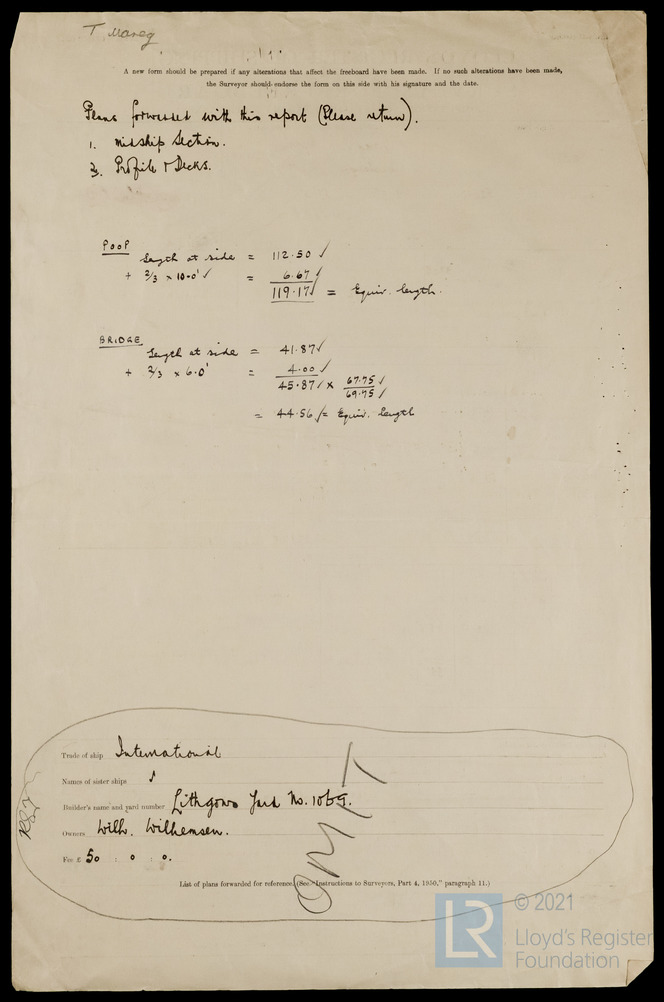 T Mareg
A new form should be prepared if any alterations that affect the freeboard have been made. If no such alterations have been made,
the Surveyor should endorse the form on this side with his signature and the date.
Plans forwarded with this report (Please return).
1. Midship Section.
2. Profile & Decks.
POOP
Length at side = 112.50 ✓
+ 2/3 × 10.0' ✓ = 6.67 ✓
119.17 ✓ = Equiv. length.
BRIDGE
Length at side = 41.87 ✓
+ 2/3 × 6.0' = 4.00 ✓
45.87 ✓ × 67.75 ✓ / 69.75 ✓
= 44.56 ✓ = Equiv. length
Trade of ship International
Names of sister ships
Builder's name and yard number Lithgows Yard No. 1069.
Owners Wilh. Wilhemsen.
Fee £ 50 : 0 : 0.
OMIT
List of plans forwarded for reference. (See "Instructions to Surveyors, Part 4, 1950," paragraph 11.)
LR
© 2021
Lloyd's Register
Foundation